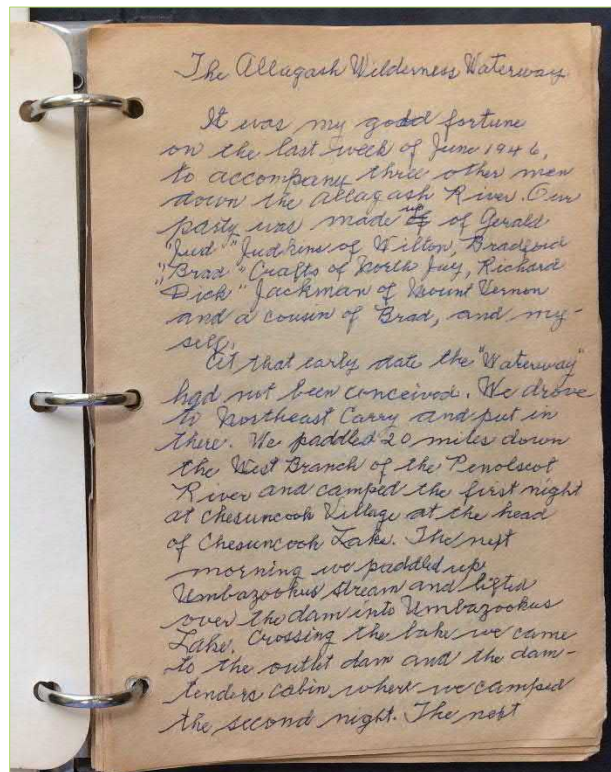 The Allagash Wilderness Waterway
It was my good fortune
on the last week of June 1946,
to accompany three other men
down the Allagash River. Our
party was made up of Gerald
"Jud" Judkins of Wilton, Bradford
"Brad" Crafts of North Jay, Richard
"Dick" Jackman of Mount Vernon
and a cousin of Brad, and my-
self.
At that early date the "Waterway"
had not been conceived. We drove
to Northeast Carry and put in
there. We paddled 20 miles down
the West Branch of the Penolscot
River and camped the first night
at Chesuncook Village at the head
of Chesuncook Lake. The next
morning we paddled up
Umbazookus stream and lifted
over the dam into Umbazookus
Lake. Crossing the lake we came
to the outlet dam and the dam-
tenders cabin where we camped
the second night. The next